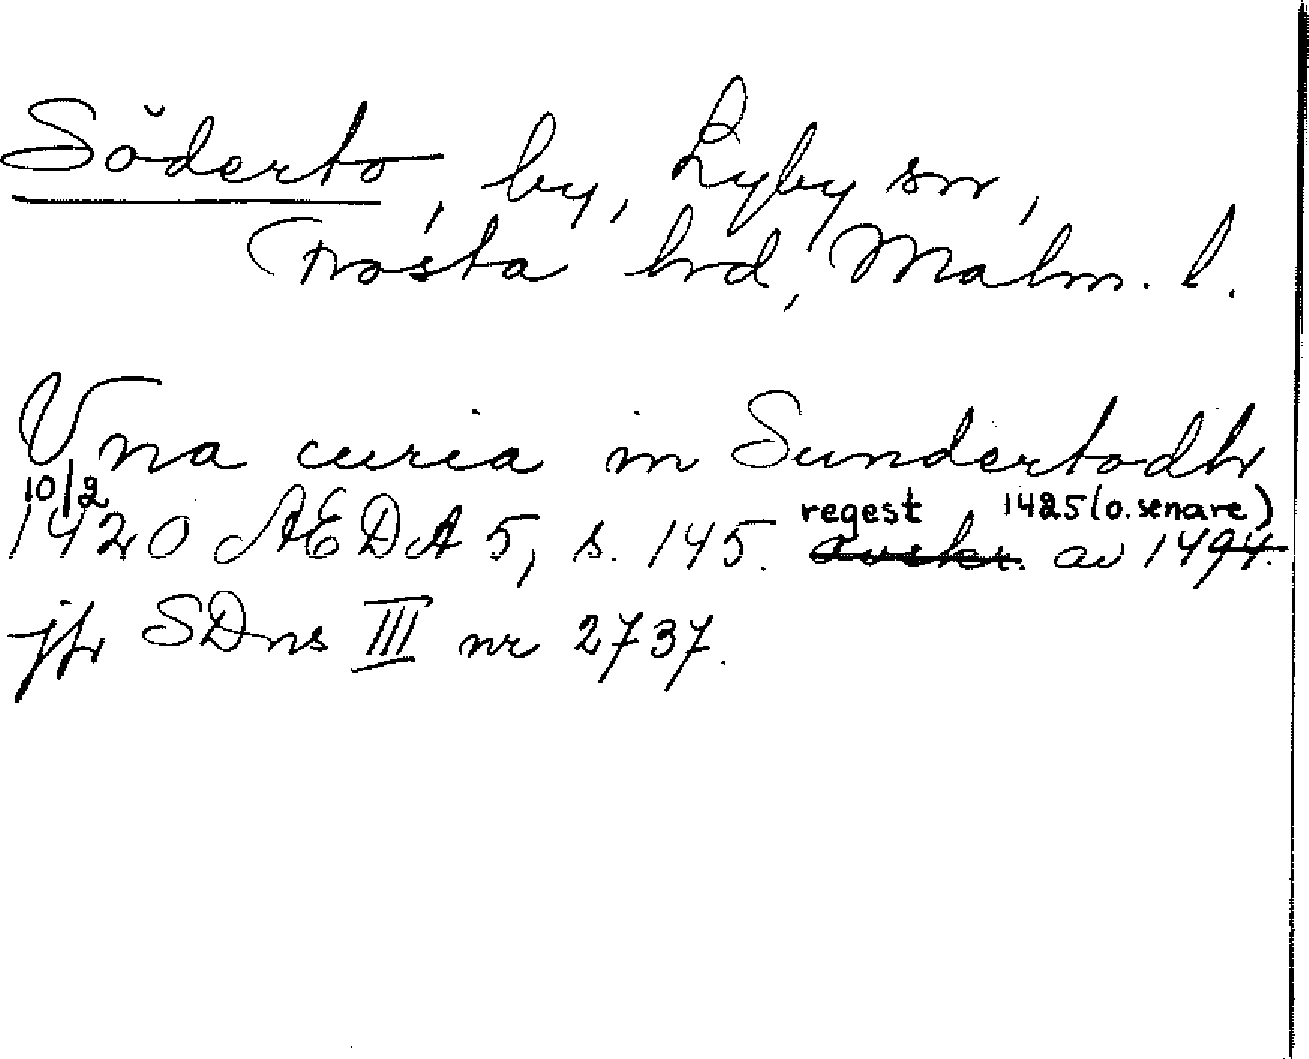 Söderto, by, Lyby sn,
Frosta hrd, Malm. l.
Vna curia in Sundertodhr
10/2 regest 1425 (o. senare)
1420 AEDA 5, s. 145. avskr. av 1494.
jfr SDns III nr 2737.